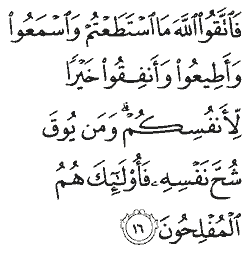 فَاتَّقُوا اللَّهَ مَا اسْتَطَعْتُمْ وَاسْمَعُوا
وَأَطِيعُوا وَأَنفِقُوا خَيْرًا
لِّأَنفُسِكُمْ ۗ وَمَن يُوقَ
شُحَّ نَفْسِهِ فَأُولَٰئِكَ هُمُ
الْمُفْلِحُونَ ١٦